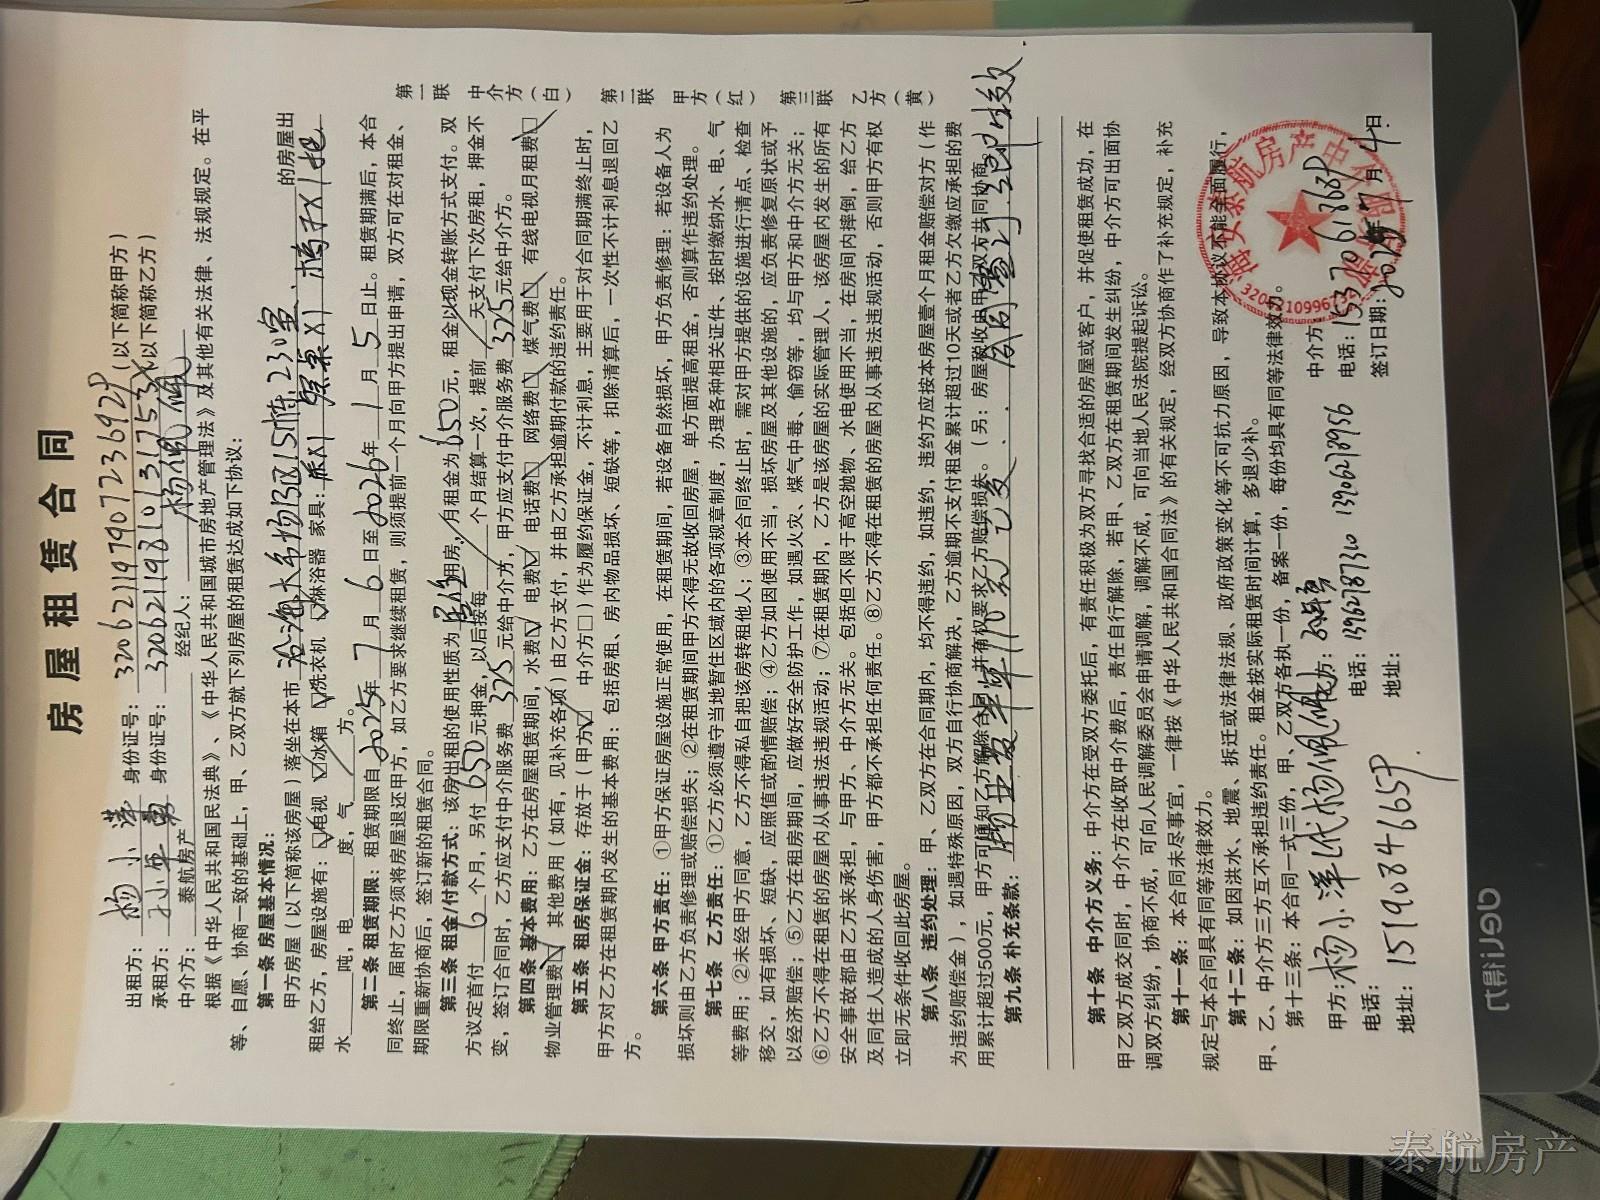 房屋租赁合同
出租方：杨小洋 身份证号：32062119790723692P（以下简称甲方）
承租方： 身份证号：32062119810131753X（以下简称乙方）
中介方：泰航房产 经纪人：杨佩佩
根据《中华人民共和国民法典》、《中华人民共和国城市房地产管理法》及其他有关法律、法规规定。在平
等、自愿、协商一致的基础上，甲、乙双方就下列房屋的租赁达成如下协议：
第一条 房屋基本情况：
甲方房屋（以下简称该房屋）落坐在本市 的房屋出
租给乙方，房屋设施有：电视 冰箱 洗衣机 淋浴器 家具：床X1 桌X1 椅子X1把
水 吨，电 度，气 方。
第二条 租赁期限：租赁期限自2025年7月6日至2026年1月5日止。租赁期满后，本合
同终止，届时乙方须将房屋退还甲方，如乙方要求继续租赁，则须提前一个月向甲方提出申请，双方可在对租金、
期限重新协商后，签订新的租赁合同。
第三条 租金/付款方式：该房出租的使用性质为居住用房，月租金为650元，租金以现金转账方式支付。双
方议定首付6个月，另付650元押金，以后按每 个月结算一次，提前 天支付下次房租，押金不
变，签订合同时，乙方应支付中介服务费325元给中介方，甲方应支付中介服务费325元给中介方。
第四条 基本费用：乙方在房屋租赁期间，水费 电费 电话费 网络费 煤气费 有线电视月租费
物业管理费 其他费用（如有，见补充各项）由乙方支付，并由乙方承担逾期付款的违约责任。
第五条 租房保证金：存放于（甲方 中介方□）作为履约保证金，不计利息，主要用于对合同期满终止时，
甲方对乙方在租赁期内发生的基本费用：包括房租、房内物品损坏、短缺等，扣除清算后，一次性不计利息退回乙
方。
第六条 甲方责任：①甲方保证房屋设施正常使用，在租赁期间，若设备自然损坏，甲方负责修理：若设备人为
损坏则由乙方负责修理或赔偿损失；②在租赁期间甲方不得无故收回房屋，单方面提高租金，否则算作违约处理。
第七条 乙方责任：①乙方必须遵守当地暂住区域内的各项规章制度，办理各种相关证件、按时缴纳水、电、气
等费用；②未经甲方同意，乙方不得私自把该房转租他人；③本合同终止时，需对甲方提供的设施进行清点、检查
移交，如有损坏、短缺，应照值或酌情赔偿；④乙方如因使用不当，损坏房屋及其他设施的，应负责修复原状或予
以经济赔偿；⑤乙方在租房期间，应做好安全防护工作，如遇火灾、煤气中毒、偷窃等，均与甲方和中介方无关；
⑥乙方不得在租赁的房屋内从事违法违规活动；⑦在租赁期内，乙方是该房屋的实际管理人，该房屋内发生的所有
安全事故都由乙方来承担，与甲方、中介方无关。包括但不限于高空抛物、水电使用不当，在房间内摔倒，给乙方
及同住人造成的人身伤害，甲方都不承担任何责任。⑧乙方不得在租赁的房屋内从事违法违规活动，否则甲方有权
立即无条件收回此房屋。
第八条 违约处理：甲、乙双方在合同期内，均不得违约，如违约，违约方应按本房屋壹个月租金赔偿对方（作
为违约赔偿金），如遇特殊原因，双方自行协商解决，乙方逾期不支付租金累计超过10天或者乙方欠缴应承担的费
用累计超过500元，甲方可通知乙方解除合同，并有权要求乙方赔偿损失。（另：房屋税收由甲乙双方共同协商。
第九条 补充条款：
第十条 中介方义务：中介方在受双方委托后，有责任积极为双方寻找合适的房屋或客户，并促使租赁成功，在
甲乙双方成交同时，中介方在收取中介费后，责任自行解除，若甲、乙双方在租赁期间发生纠纷，中介方可出面协
调双方纠纷，协商不成，可向人民调解委员会申请调解，调解不成，可向当地人民法院提起诉讼。
第十一条：本合同未尽事宜，一律按《中华人民共和国合同法》的有关规定，经双方协商作了补充规定，补充
规定与本合同具有同等法律效力。
第十二条：如因洪水、地震、拆迁或法律法规、政府政策变化等不可抗力原因，导致本协议不能全面履行，
甲、乙、中介方三方互不承担违约责任。租金按实际租赁时间计算，多退少补。
第十三条：本合同一式三份，甲、乙双方各执一份，备案一份，每份均具有同等法律效力。
甲方：杨小洋代杨佩佩 乙方： 中介方：
电话： 电话：13962787310 13902178956 电话：15370618688
地址：15190846658 地址： 签订日期：2025年7月4日
第一联 中介方（白） 第二联 甲方（红） 第三联 乙方（黄）
deli得力
泰航房产